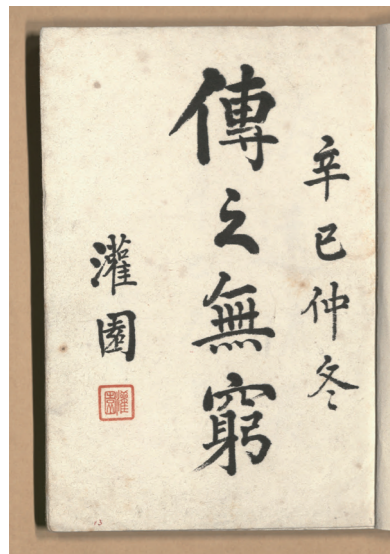 辛巳仲冬
傳之無窮
灌園
灌園
13